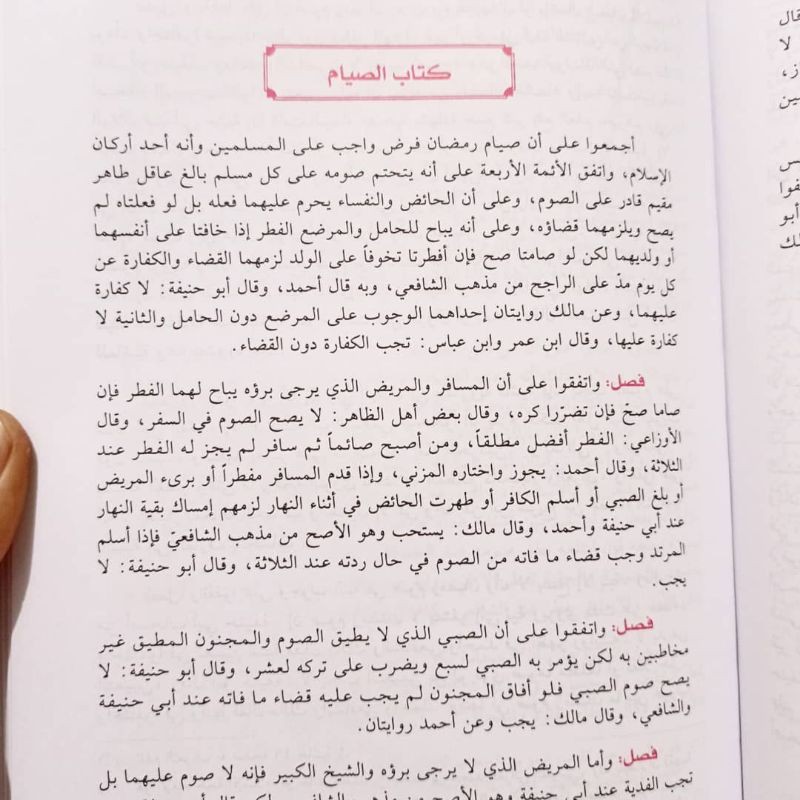 كتاب الصيام
أجمعوا على أن صيام رمضان فرض واجب على المسلمين وأنه أحد أركان
الإسلام، واتفق الأئمة الأربعة على أنه يتحتم صومه على كل مسلم بالغ عاقل طاهر
مقيم قادر على الصوم، وعلى أن الحائض والنفساء يحرم عليهما فعله بل لو فعلتاه لم
يصح ويلزمهما قضاؤه، وعلى أنه يباح للحامل والمرضع الفطر إذا خافتا على أنفسهما
أو ولديهما لكن لو صامتا صح فإن أفطرتا تخوفاً على الولد لزمهما القضاء والكفارة عن
كل يوم مدّ على الراجح من مذهب الشافعي، وبه قال أحمد، وقال أبو حنيفة: لا كفارة
عليهما، وعن مالك روايتان إحداهما الوجوب على المرضع دون الحامل والثانية لا
كفارة عليها، وقال ابن عمر وابن عباس: تجب الكفارة دون القضاء.
فصل: واتفقوا على أن المسافر والمريض الذي يرجى برؤه يباح لهما الفطر فإن
صاما صحّ فإن تضرّرا كره، وقال بعض أهل الظاهر: لا يصح الصوم في السفر، وقال
الأوزاعي: الفطر أفضل مطلقاً، ومن أصبح صائماً ثم سافر لم يجز له الفطر عند
الثلاثة، وقال أحمد: يجوز واختاره المزني، وإذا قدم المسافر مفطراً أو برىء المريض
أو بلغ الصبي أو أسلم الكافر أو طهرت الحائض في أثناء النهار لزمهم إمساك بقية النهار
عند أبي حنيفة وأحمد، وقال مالك: يستحب وهو الأصح من مذهب الشافعيّ فإذا أسلم
المرتد وجب قضاء ما فاته من الصوم في حال ردته عند الثلاثة، وقال أبو حنيفة: لا
يجب.
فصل: واتفقوا على أن الصبي الذي لا يطيق الصوم والمجنون المطيق غير
مخاطبين به لكن يؤمر به الصبي لسبع ويضرب على تركه لعشر، وقال أبو حنيفة: لا
يصح صوم الصبي فلو أفاق المجنون لم يجب عليه قضاء ما فاته عند أبي حنيفة
والشافعي، وقال مالك: يجب وعن أحمد روايتان.
فصل: وأما المريض الذي لا يرجى برؤه والشيخ الكبير فإنه لا صوم عليهما بل
تجب الفدية عند أبي حنيفة وهو الأصح من مذهب
قال
لا
ين
فوا
أبو
لك